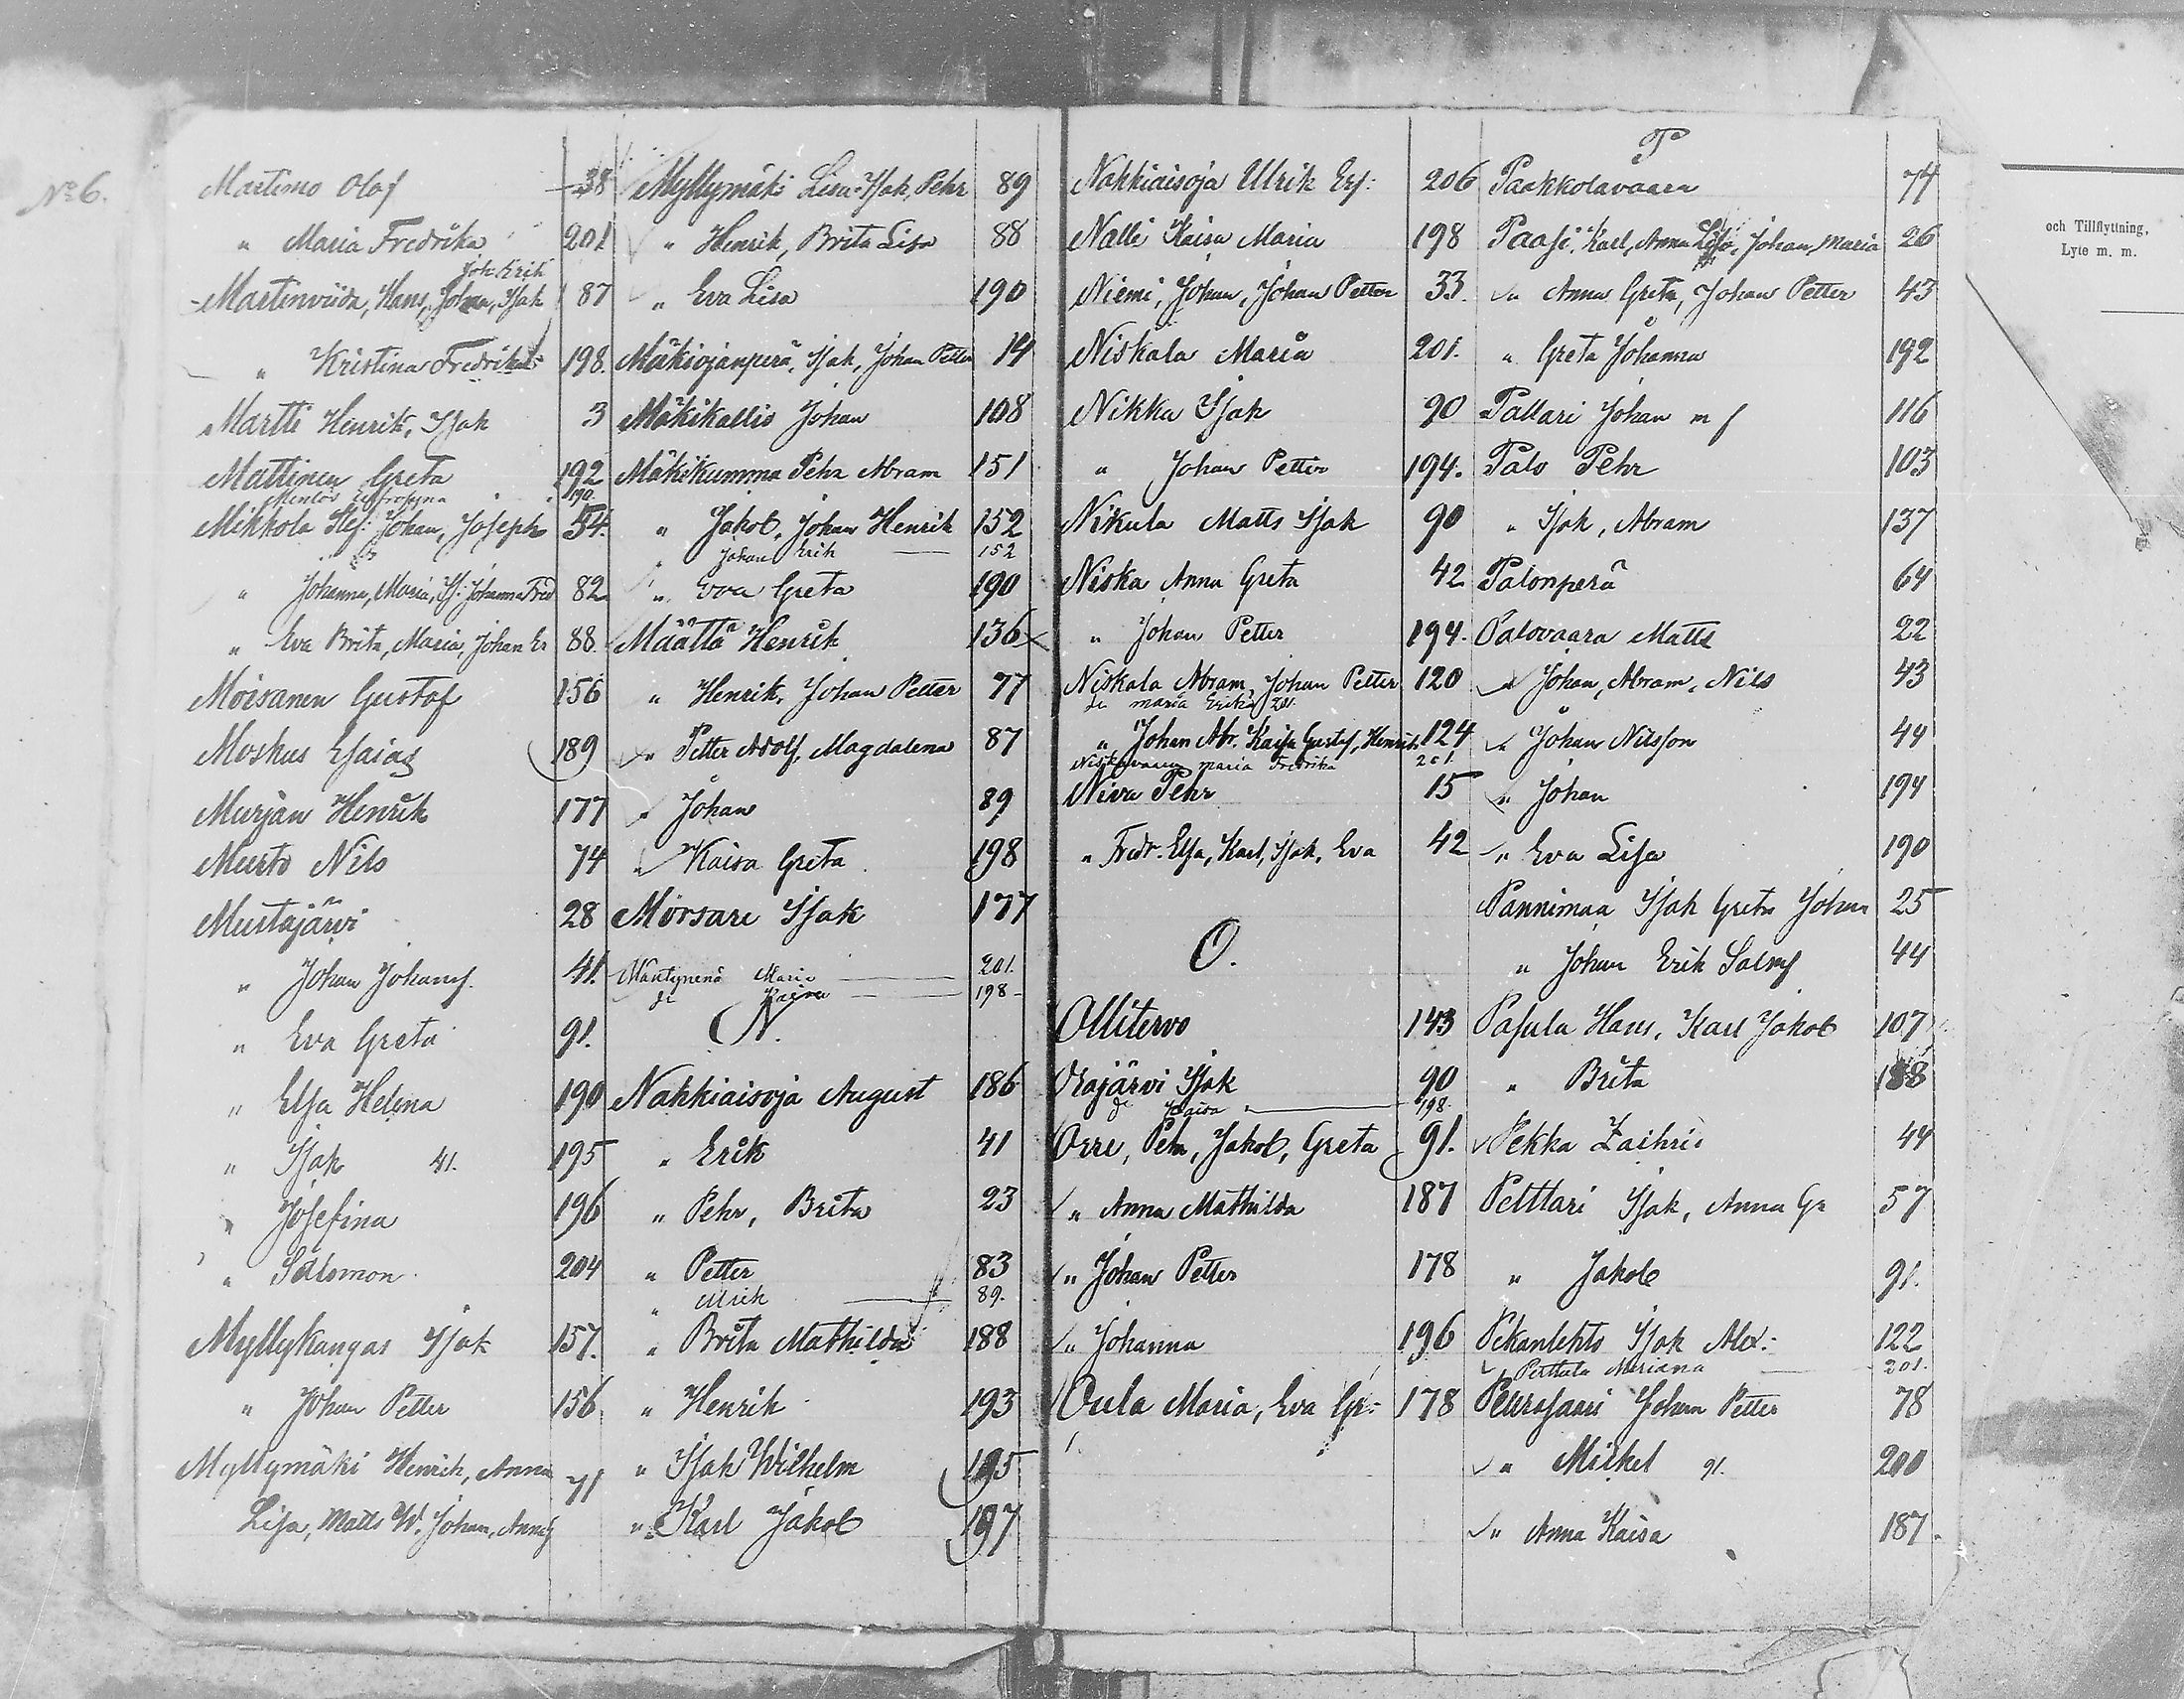 No 6.
Martimo Olof 38
" Maria Fredrika 201
Joh. Erik
Martinviida, Hans, Johan, Isak 87
" Kristina Fredrika 198.
Martti Henrik, Isak 3
Mattinen Greta 192
190.
Mikkola Johan, Joseph 54.
" Johanna, Maria, Johanna Fred 82
" Eva Brita, Maria, Johan Er 88.
Moisanen Gustaf 156
Moskus Esaias 189
Murjan Henrik 177
Murto Nils 74
Mustajärvi 28
" Johan Johansf. 41.
" Eva Greta 91.
" Elsa Helena 190
" Isak 41. 195
" Josefina 196
" Salomon 204
Myllykangas Isak 157.
" Johan Petter 156
Myllymäki Henrik, Anna 71
Lisa, Matts W. Johan, Anna
Myllymäki Lisa Isak, Pehr 89
" Henrik, Brita Lisa 88
" Eva Lisa 190
Mäkiojanperä, Isak, Johan Petter 14
Mäkikallio Johan 108
Mäkikumma Pehr Abram 151
" Jakob, Johan Henrik 152
" Johan Erik 152
" Eva Greta 190
Määttä Henrik 136
" Henrik, Johan Petter 77
" Petter Adolf, Magdalena 87
" Johan 89
" Kaisa Greta 198
Mörsäri Isak 177
Mäntyperä Maria 201.
d:o Kaisa 198
N.
Nakkiaisoja August 186
" Erik 41
" Pehr, Brita 23
" Petter 83
" Ulrik 89.
" Brita Mathilda 188
" Henrik 193
" Isak Wilhelm 195
" Karl Jakob 197
Nakkiaisoja Ulrik Ers: 206
Nalli Kaisa Maria 198
Niemi, Johan, Johan Petter 33.
Niskala Maria 201.
Nikka Isak 90
" Johan Petter 194.
Nikula Matts Isak 90
Niska Anna Greta 42
" Johan Petter 194.
Niskala Abram, Johan Petter 120
d:o maria Erika 201.
" Johan Abr. Kaisa Gustaf, Henrik 124
Niskavaara maria Fredrika 201.
Niva Pehr 15
" Fredr. Elsa, Karl, Isak, Eva 42
O.
Ollitervo 143
Orajärvi Isak 90
d:o Kaisa 198.
Orre, Pehr, Jakob, Greta 91.
" Anna Mathilda 187
" Johan Petter 178
" Johanna 196
Oula Maria, Eva Gr: 178
P
Paakkolavaara 74
Paasi, Karl, Anna Lisa, Johan, Maria 26
" Anna Greta, Johan Petter 43
" Greta Johanna 192
Pallari Johan m f 116
Palo Pehr 103
" Isak, Abram 137
Palonperä 64
Palovaara Matts 22
" Johan, Abram, Nils 43
" Johan Nilsson 44
" Johan 194
" Eva Lisa 190
Pannimaa Isak Greta Johan 25
" Johan Erik Salmsf 44
Pasula Hans, Karl Jakob 107
" Brita 188
Pekka Zachris 44
Pelttari Isak, Anna Gr 57
" Jakob 91.
Pekanlehto Isak Alex: 122
Perttula Mariana 201.
Petursaari Johan Petter 78
" Mickel 91. 200
" Anna Kaisa 187.
och Tillflyttning,
Lyte m. m.